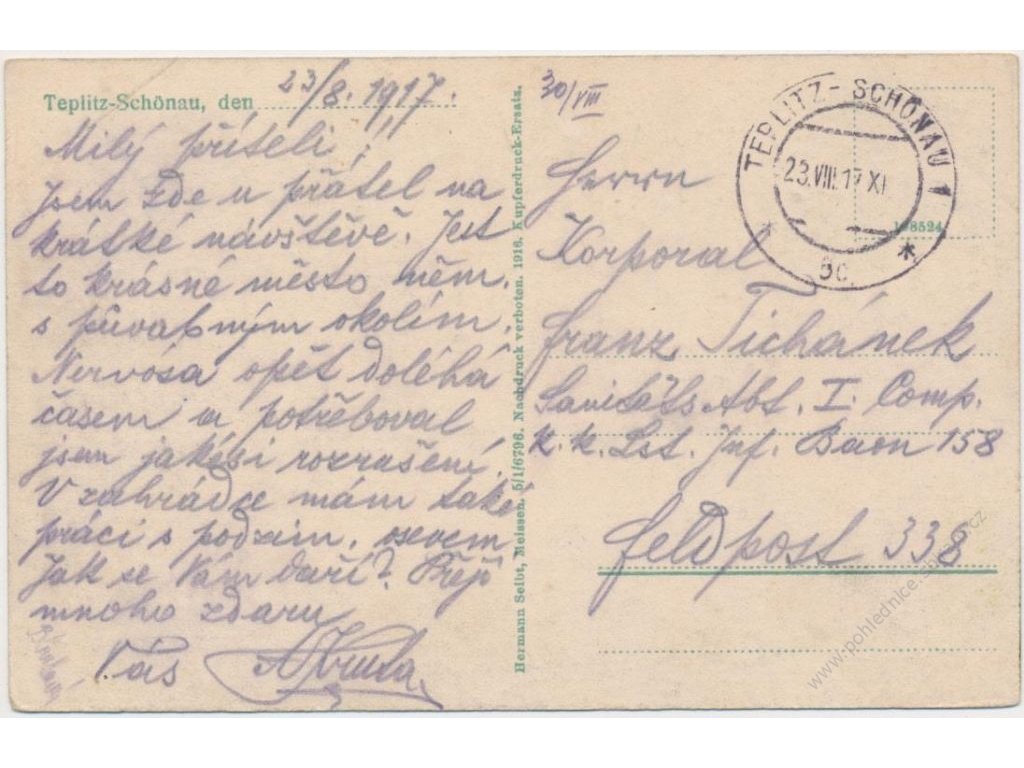 Teplitz-Schönau, den 23/8. 1917.
Milý příteli!
Jsem zde u přátel na
krátké návštěvě. Jest
to krásné město něm.
s půvabným okolím.
Nervósa opět doléhá
časem a potřeboval
jsem jakési rozrašení.
V zahrádce mám také
práci s podzim. osevem
Jak se Vám daří? Přeji
mnoho zdaru
Vás
Hermann Seibt, Meissen. 5/1/6796. Nachdruck verboten. 1916. Kupferdruck-Ersatz.
30/VIII
TEPLITZ-SCHÖNAU 1
23.VIII.17 XI
* 8c *
198524
Herrn
Korporal
Franz Ticháněk
Sanitäts Abt. I. Comp.
k. k. Lst. Inf. Baon 158
Feldpost 338
www.pohlednice.cz